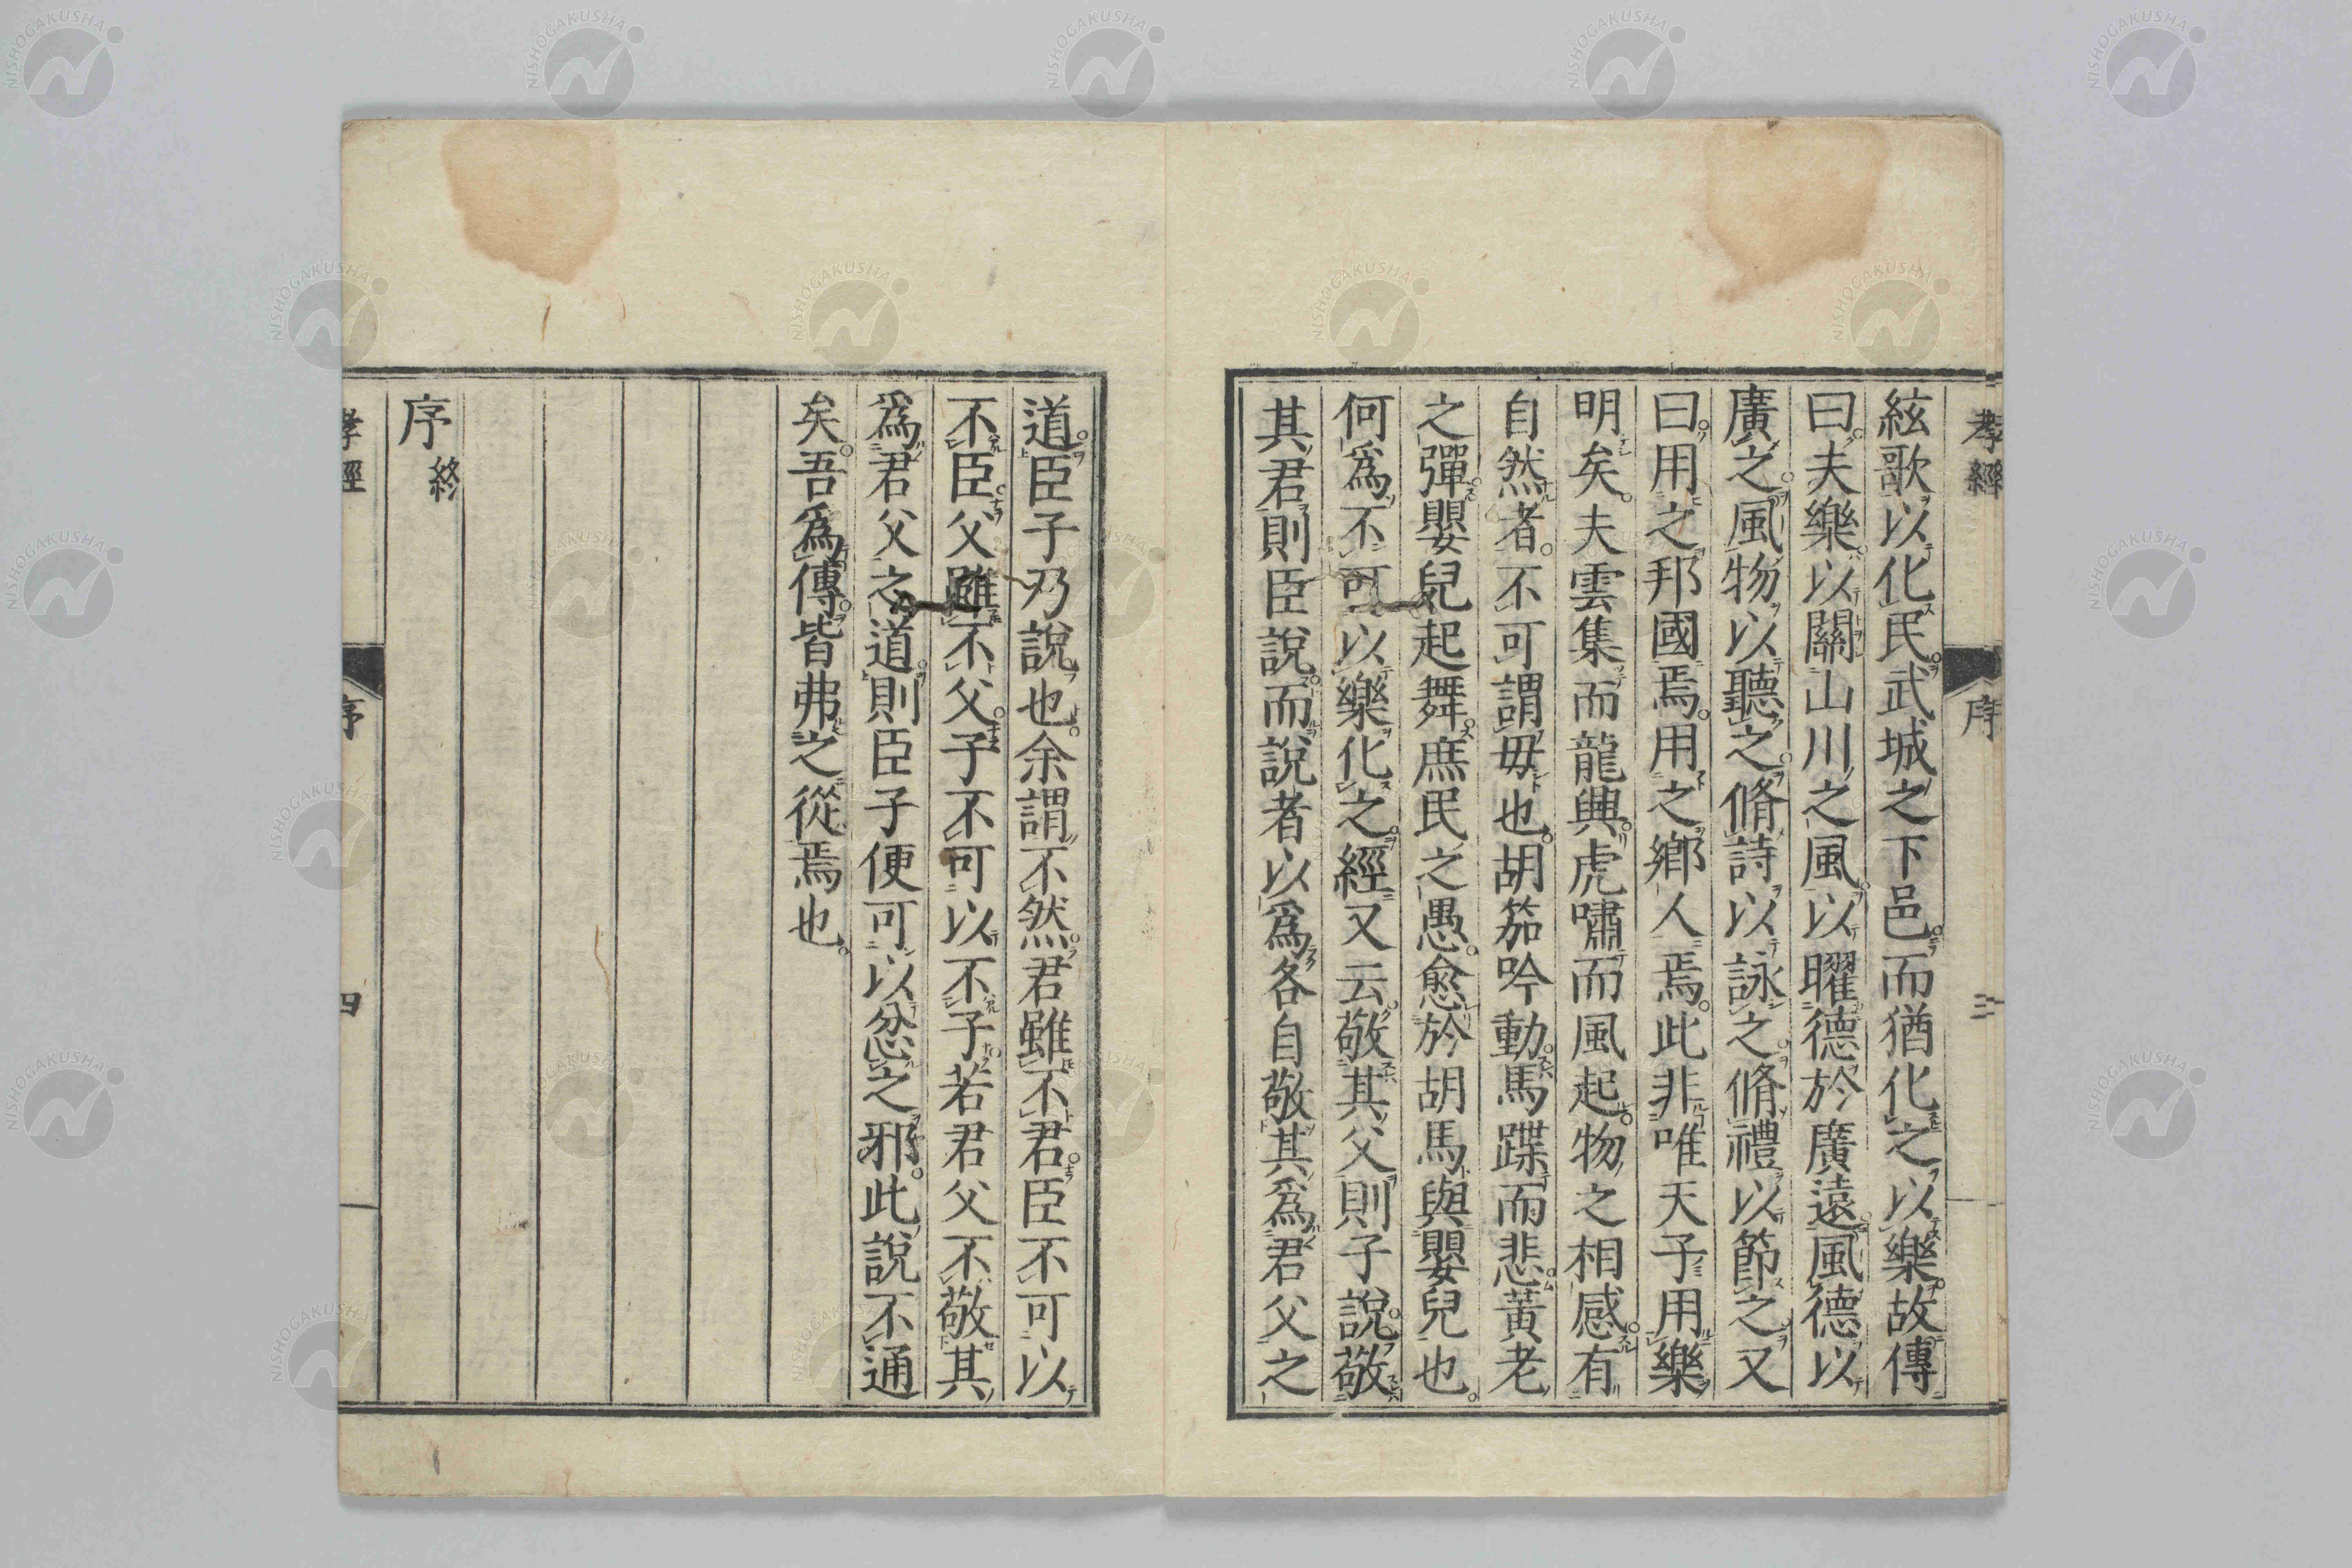 孝經
序
三
絃歌以化民武城之下邑而猶化之以樂故傳
曰夫樂以關山川之風以曜德於廣遠風德以
廣之風物以聽之脩詩以詠之脩禮以節之又
曰用之邦國焉用之鄉人焉此非唯天子用樂
明矣夫雲集而龍興虎嘯而風起物之相感有
自然者不可謂毋也胡笳吟動馬蹀而悲黃老
之彈嬰兒起舞庶民之愚愈於胡馬與嬰兒也
何爲不可以樂化之經又云敬其父則子說敬
其君則臣說而說者以爲各自敬其爲君父之
道臣子乃說也余謂不然君雖不君臣不可以
不臣父雖不父子不可以不子若君父不敬其
爲君父之道則臣子便可以忿之邪此說不通
矣吾爲傳皆弗之從焉也
序終
孝經
序
四
NISHOGAKUSHA